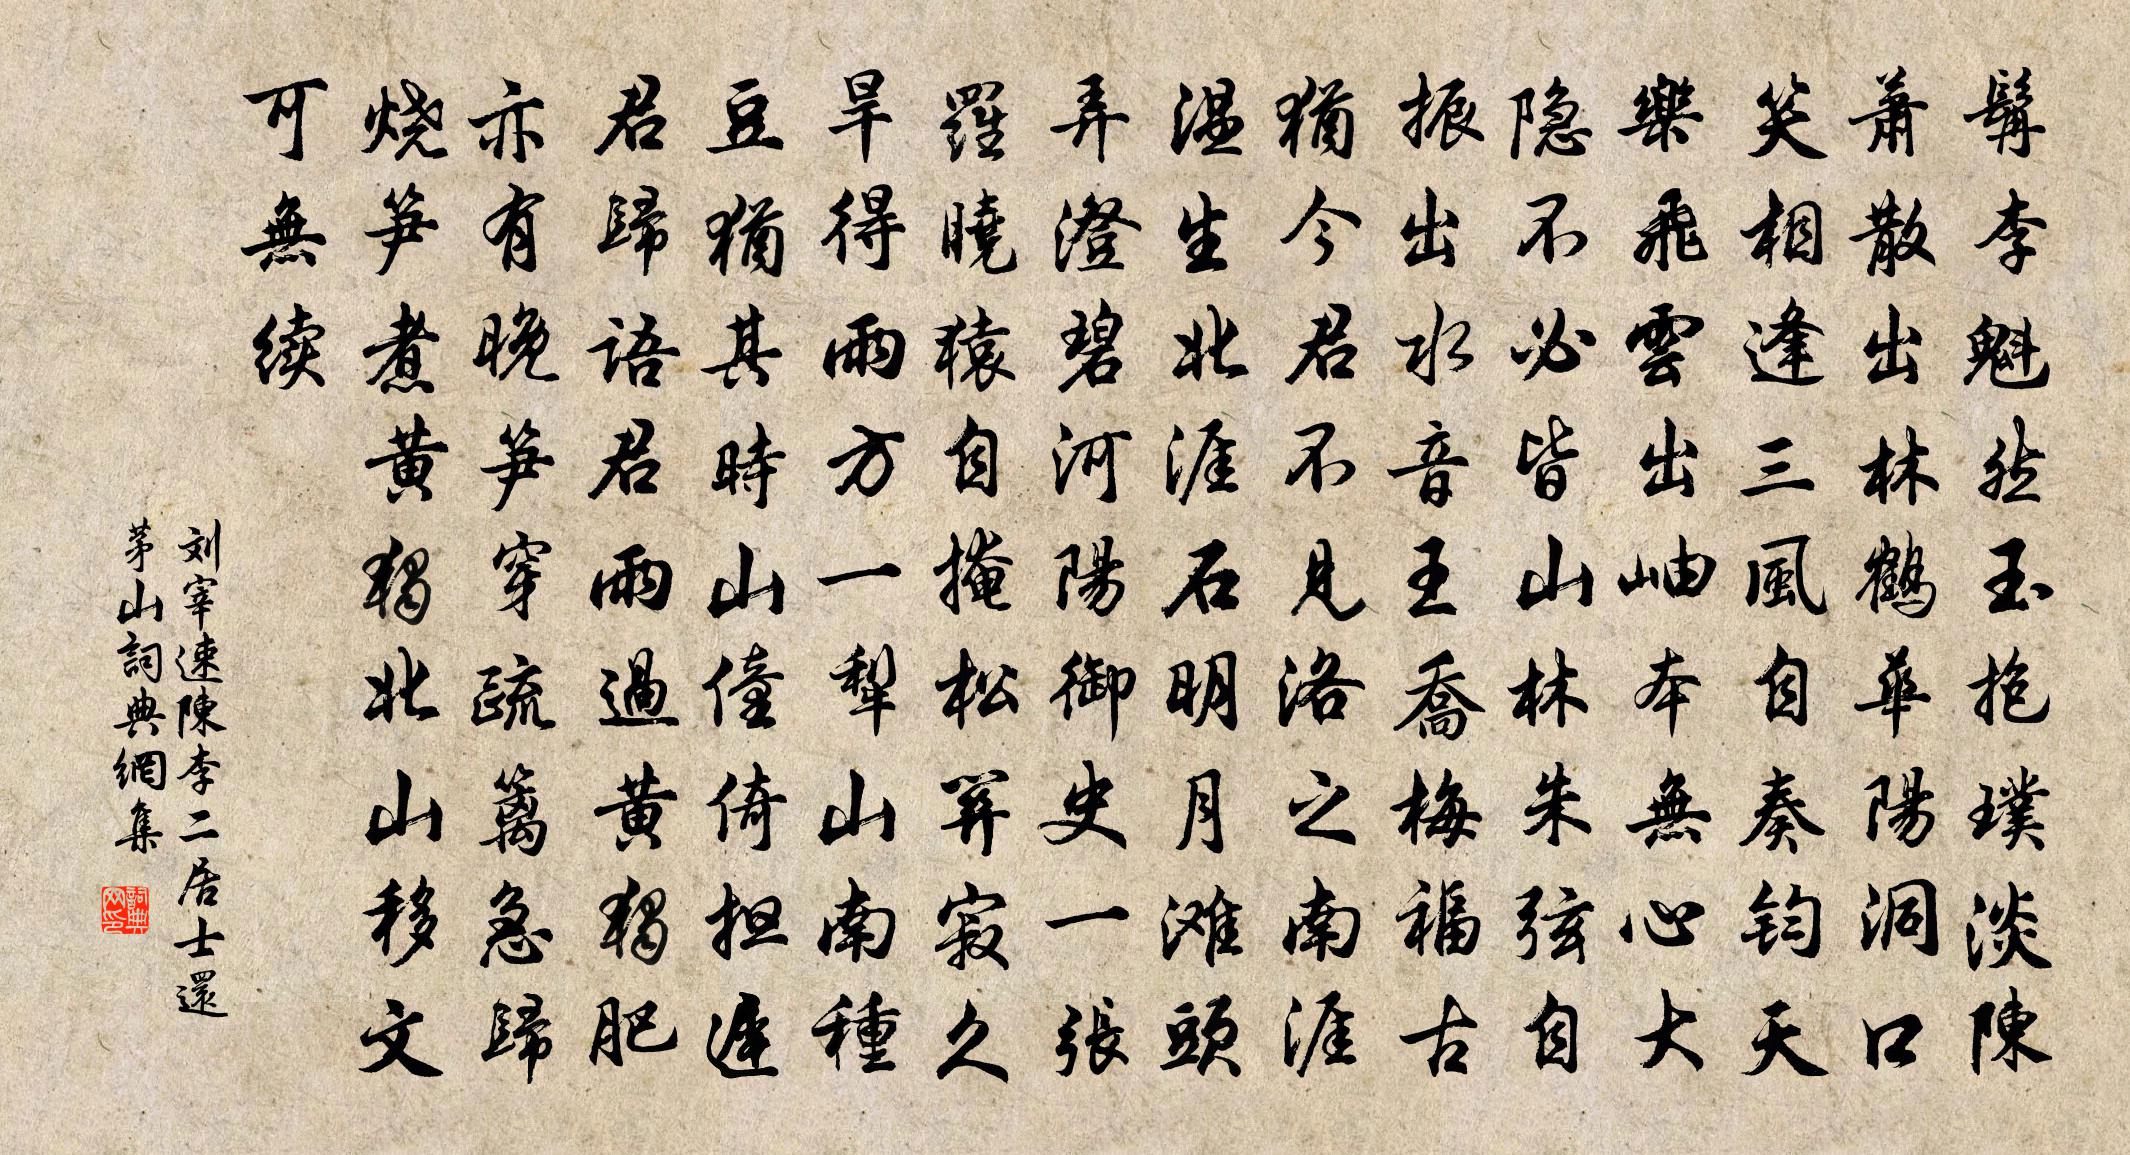 髯李魁然玉抱璞淡陳
蕭散出林鶴華陽洞口
笑相逢三風自奏鈞天
樂飛雲出岫本無心大
隐不必皆山林朱弦自
振出水音王喬梅福古
猶今君不見洛之南涯
温生北涯石明月滩頭
弄澄碧河陽御史一張
羅曉猿自掩松關寂久
旱得雨方一犁山南種
豆猶其時山僮倚担遲
君歸語君雨過黄犢肥
亦有晚笋穿疏篱急歸
烧笋煮黄犢北山移文
可無续
刘宰速陳李二居士還
茅山詞典網集